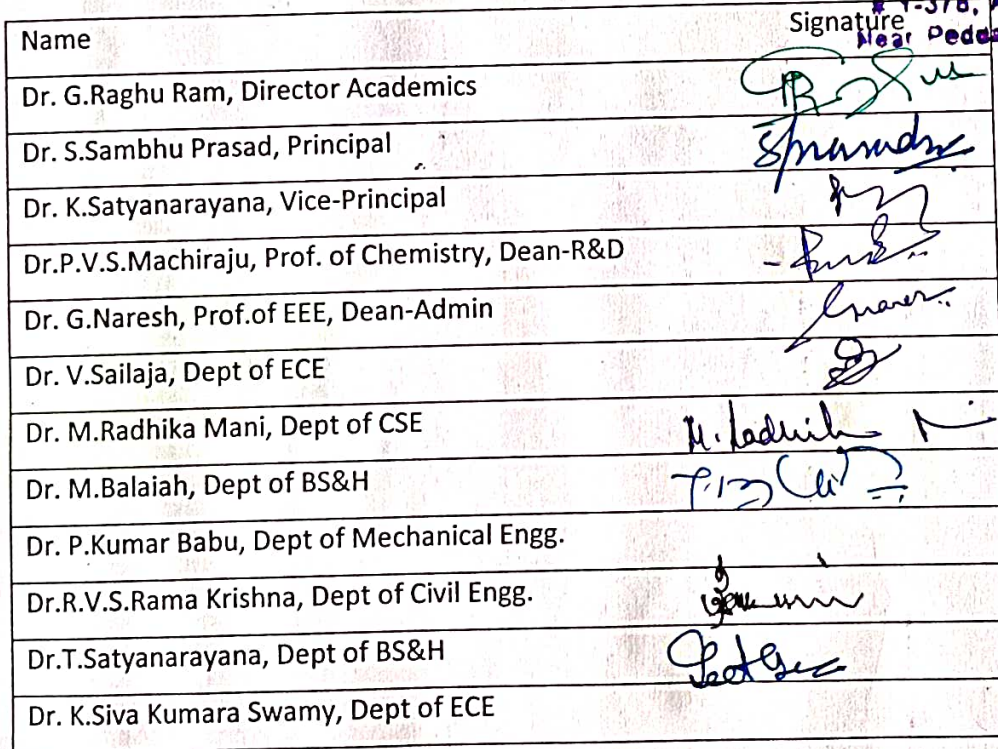 Name Signature
Near
Dr. G.Raghu Ram, Director Academics
Dr. S.Sambhu Prasad, Principal
Dr. K.Satyanarayana, Vice-Principal
Dr.P.V.S.Machiraju, Prof. of Chemistry, Dean-R&D
Dr. G.Naresh, Prof.of EEE, Dean-Admin
Dr. V.Sailaja, Dept of ECE
Dr. M.Radhika Mani, Dept of CSE
Dr. M.Balaiah, Dept of BS&H
Dr. P.Kumar Babu, Dept of Mechanical Engg.
Dr.R.V.S.Rama Krishna, Dept of Civil Engg.
Dr.T.Satyanarayana, Dept of BS&H
Dr. K.Siva Kumara Swamy, Dept of ECE